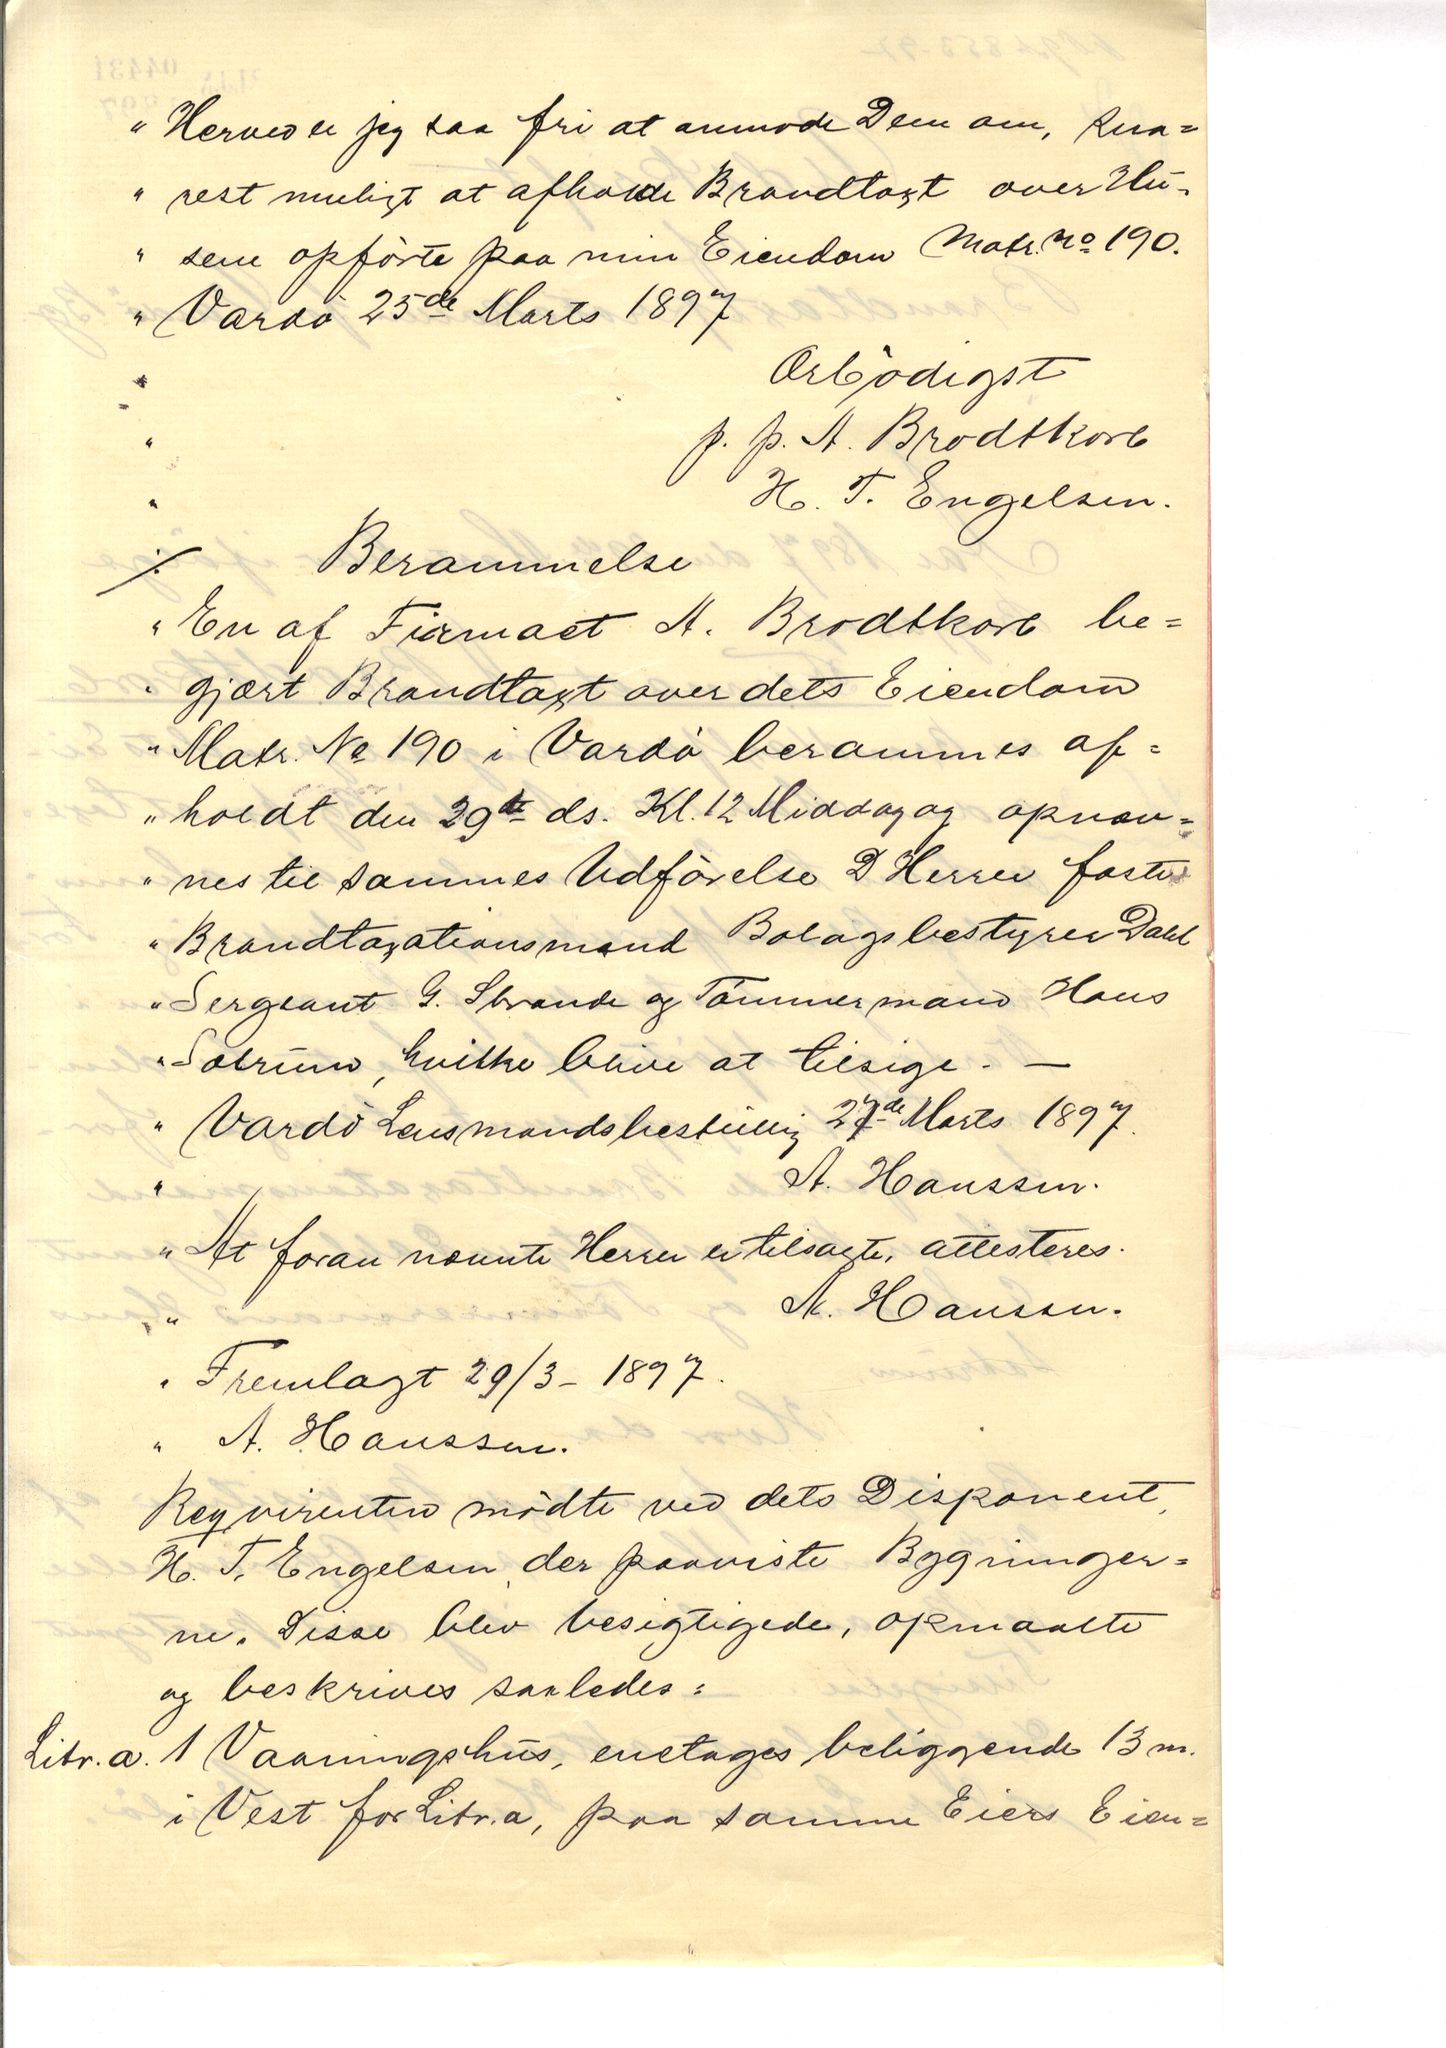 " Herved er jeg saa fri at anmode Dem om, sna=
" rest muligt at afholde Brandtaxt over Hu-
" sene opförte paa min Eiendom Matr. No 190.
" Vardö 25de Marts 1897
" Ærbödigst
" p. p. A. Brodtkorb
" H. T. Engelsen.
Berammelse
" En af Firmaet A. Brodtkorb be=
" gjært Brandtaxt over dets Eiendom
" Matr. No 190 i Vardö berammes af=
" holdt den 29de ds. Kl. 12 Middag og opnæv=
" nes til sammes Udförelse D Herrer faste
" Brandtaxationsmand Bolagsbestyrer Dahl
" Sergeant G. Strande og Tömmermand Hans
" Sotrum, hvilke blive at tilsige. —
" Vardö Lensmandsbestilling 27de Marts 1897.
" A. Hanssen.
" At foran nævnte Herrer er tilsagte, attesteres.
" A. Hanssen.
" Fremlagt 29/3 - 1897.
" A. Hanssen.
Reqvirenten mödte ved dets Disponent,
H. T. Engelsen, der paaviste Bygninger=
ne. Disse blev besigtigede, opmaalte
og beskrives saaledes:
Litr. a. 1 Vaaningshus, enetages beliggende 13 m.
i Vest for Litr. a, paa samme Eiers Eien=